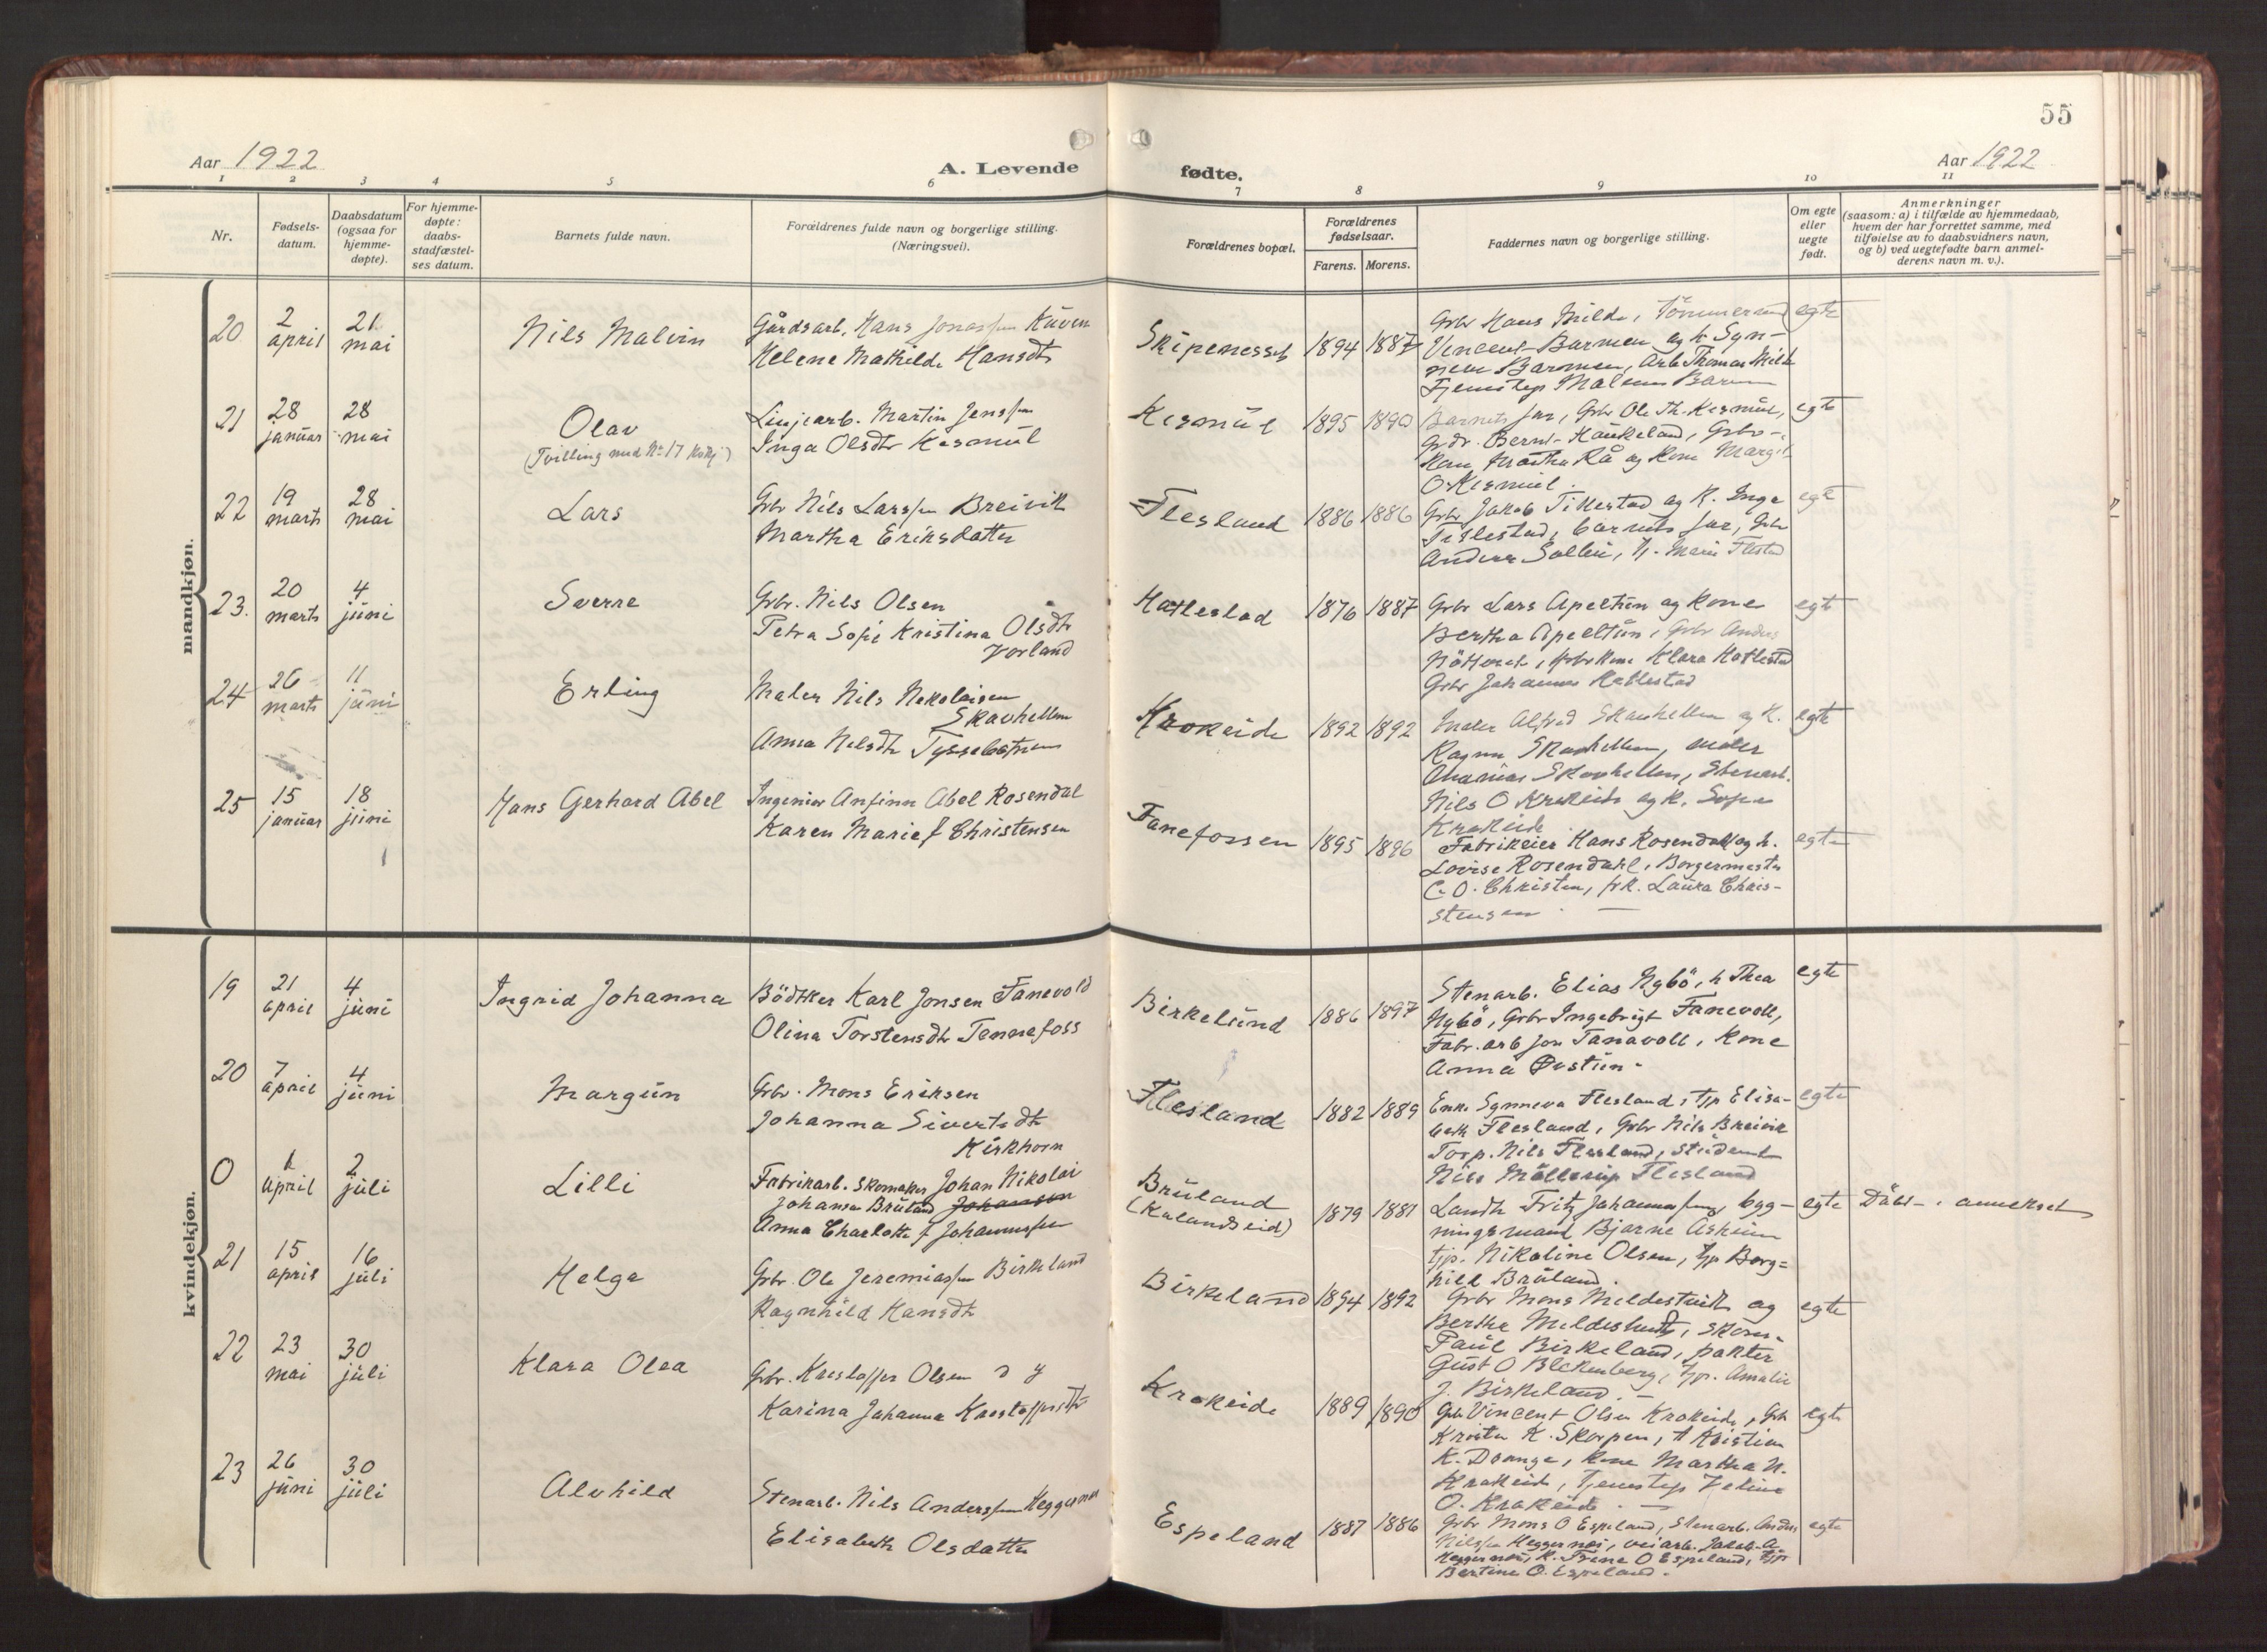 55
Aar 1922
A. Levende
fødte.
Aar 1922
1 2 3 4 5 6 7 8 9 10 11
Nr.
Fødsels-
datum.
Daabsdatum
(ogsaa for
hjemme-
døpte).
For hjemme-
døpte:
daabs-
stadfæstel-
ses datum.
Barnets fulde navn.
Forældrenes fulde navn og borgerlige stilling.
(Næringsvei).
Forældrenes bopæl.
Forældrenes
fødselsaar.
Farens. Morens.
Faddernes navn og borgerlige stilling.
Om egte
eller
uegte
født.
Anmerkninger
(saasom: a) i tilfælde av hjemmedaab,
hvem der har forrettet samme, med
tilføielse av to daabsvidners navn,
og b) ved uegtefødte barn anmel-
derens navn m. v.).
mandkjøn.
20
2
april
21
mai
Nils Malvin
Gårdsarb. Hans Jonassen Kuven
Helene Mathilde Hansdtr
Skipenesset
1894 1887
Grbr Hans Milde, Tömmermand
Vincent Barmen og h. Syn-
neve Barmen, Arb Thomas Milde
Tjenestep Malene Barmen
egte
21
28
januar
28
mai
Olav
(Tvilling med No 17 Kvkj)
Linjearb. Martin Jenssen
Inga Olsdtr Kismul
Kismul
1895 1890
Barnets far, Grbr Ole Th. Kismul,
Grdr. Bernt Haukeland, Grbr-
Kone Martha Rå og Kone Margit
O. Kismul.
egte
22
19
marts
28
mai
Lars
Grbr Nils Larssen Breivik
Martha Eriksdatter
Flesland
1886 1886
Grbr Jakob Titlestad og K. Inga
Titlestad, barnets far, Grbr
Anders Sollien, tj. Marie Flesland
egte
23.
20
marts
4
juni
Sverre
Grbr. Nils Olsen
Petra Sofie Kristina Olsdtr
Vorland
Hatlestad
1876 1887
Grbr Lars Apeltun og Kone
Bertha Apeltun, Grbr Anders
Nöttveit, grbrkone Klara Hatlestad
Grbr Johannes Hatlestad
egte
24
26
marts
11
juni
Erling
Maler Nils Nikolaisen
Skavhellen
Anna Nilsdtr Tyssebotnen
Krokeide
1892 1892
Maler Alfred Skavhellen og K.
Ragna Skavhellen, maler
Ananias Skavhellen, Stenarb.
Nils O Krokeide og K. Sofie
Krokeide
egte
25
15
januar
18
juni
Hans Gerhard Abel
Ingeniør Anfinn Abel Rosendal
Karen Marie f Christensen
Fanefossen
1895 1896
Fabrikeier Hans Rosendahl og h.
Lovise Rosendahl, Borgermester
C. O. Christen, frk. Laura Chris-
stensen
egte
kvindekjøn.
19
21
april
4
juni
Ingrid Johanna
Bödtker Karl Jonsen Fanevold
Olina Torstensdtr Tennefoss
Birkelund
1886 1897
Stenarb. Elias Nybö, h Thea
Nybö, Grbr Ingebrigt Fanevoll,
Fabr. arb Jon Fanavoll, Kone
Anna Østün-
egte
20
7
april
4
juni
Margun
Grbr. Mons Eriksen
Johanna Sivertsdtr
Kirkhorn
Flesland
1882 1889
Enke Synneva Flesland, tjp Elisa-
beth Flesland, Grbr Nils Breivik
Torp. Nils Flesland, student
Nils Möllerup Flesland
egte
0
1
april
2
juli
Lilli
Fabrikarb. Skomaker Johan Nikolai
Johansen Bruland Johansen
Anna Charlotte f Johannessen
Bruland
(Kalandseid)
1879 1881
Landh. Fritz Johannessen, byg-
ningsmand Bjarne Asheim
tjp. Nikoline Olsen, tjp Borg=
hild Bruland.
egte
Dåbt - i annekset
21
15
april
16
juli
Helga
Grbr. Ole Jeremiassen Birkeland
Ragnhild Hansdtr
Birkeland
1894 1892
Grbr Mons Mildestveit og
Bertha Mildestveit, skom.
Paul Birkeland, pakter
Gust O Blekenberg, tjp. Amalie
J. Birkeland. -
egte
22
23
mai
30
juli
Klara Olea
Grbr. Kristoffer Olsen d y
Karina Johanna Kristoffersdtr
Krokeide
1889 1890
Grbr Vincent Olsen Krokeide, Grbr
Krister K. Skorpen, Kristian
K. Drange, Kone Martha N.
Krokeide, Tjenestep Heline
O. Krokeide. -
egte
23
26
juni
30
juli
Alvhild
Stenarb. Nils Anderssen Heggernes
Elisabeth Olsdatter
Espeland
1887 1886
Grbr Mons O Espeland, Stenarb. Anders
Nilssen Heggernes, veiarb. Jakob A.
Heggernes, K. Trine O Espeland, tjp
Bertine O. Espeland.
egte